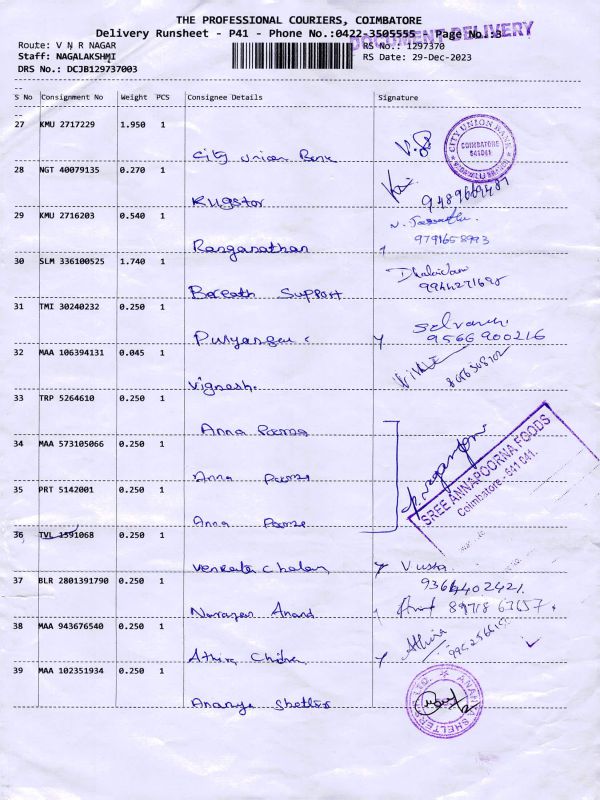 THE PROFESSIONAL COURIERS, COIMBATORE
Delivery Runsheet - P41 - Phone No.:0422-3505555 - Page No.:3
DOCUMENT DELIVERY
Route: V N R NAGAR
RS No.: 1297370
Staff: NAGALAKSHMI
RS Date: 29-Dec-2023
DRS No.: DCJB129737003
S No Consignment No Weight PCS Consignee Details Signature
27 KMU 2717229 1.950 1
City Union Bank
CITY UNION BANK COIMBATORE 641041
28 NGT 40079135 0.270 1
Rugstor
9489669487
29 KMU 2716203 0.540 1
Ranganathan
30 SLM 336100525 1.740 1
Support
31 TMI 30240232 0.250 1
9566900216
32 MAA 106394131 0.045 1
Vignesh.
33 TRP 5264610 0.250 1
Anna Poorna
34 MAA 573105066 0.250 1
Anna Poorna
SREE ANNAPOORNA FOODS
Coimbatore - 641 041.
35 PRT 5142001 0.250 1
Anna Poorna
36 TVL 1591068 0.250 1
Venkata Chalam
9364402421
37 BLR 2801391790 0.250 1
Narayan Anand
89718 63657
38 MAA 943676540 0.250 1
Athira Chitra
Athira
39 MAA 102351934 0.250 1
Ananya Shelters